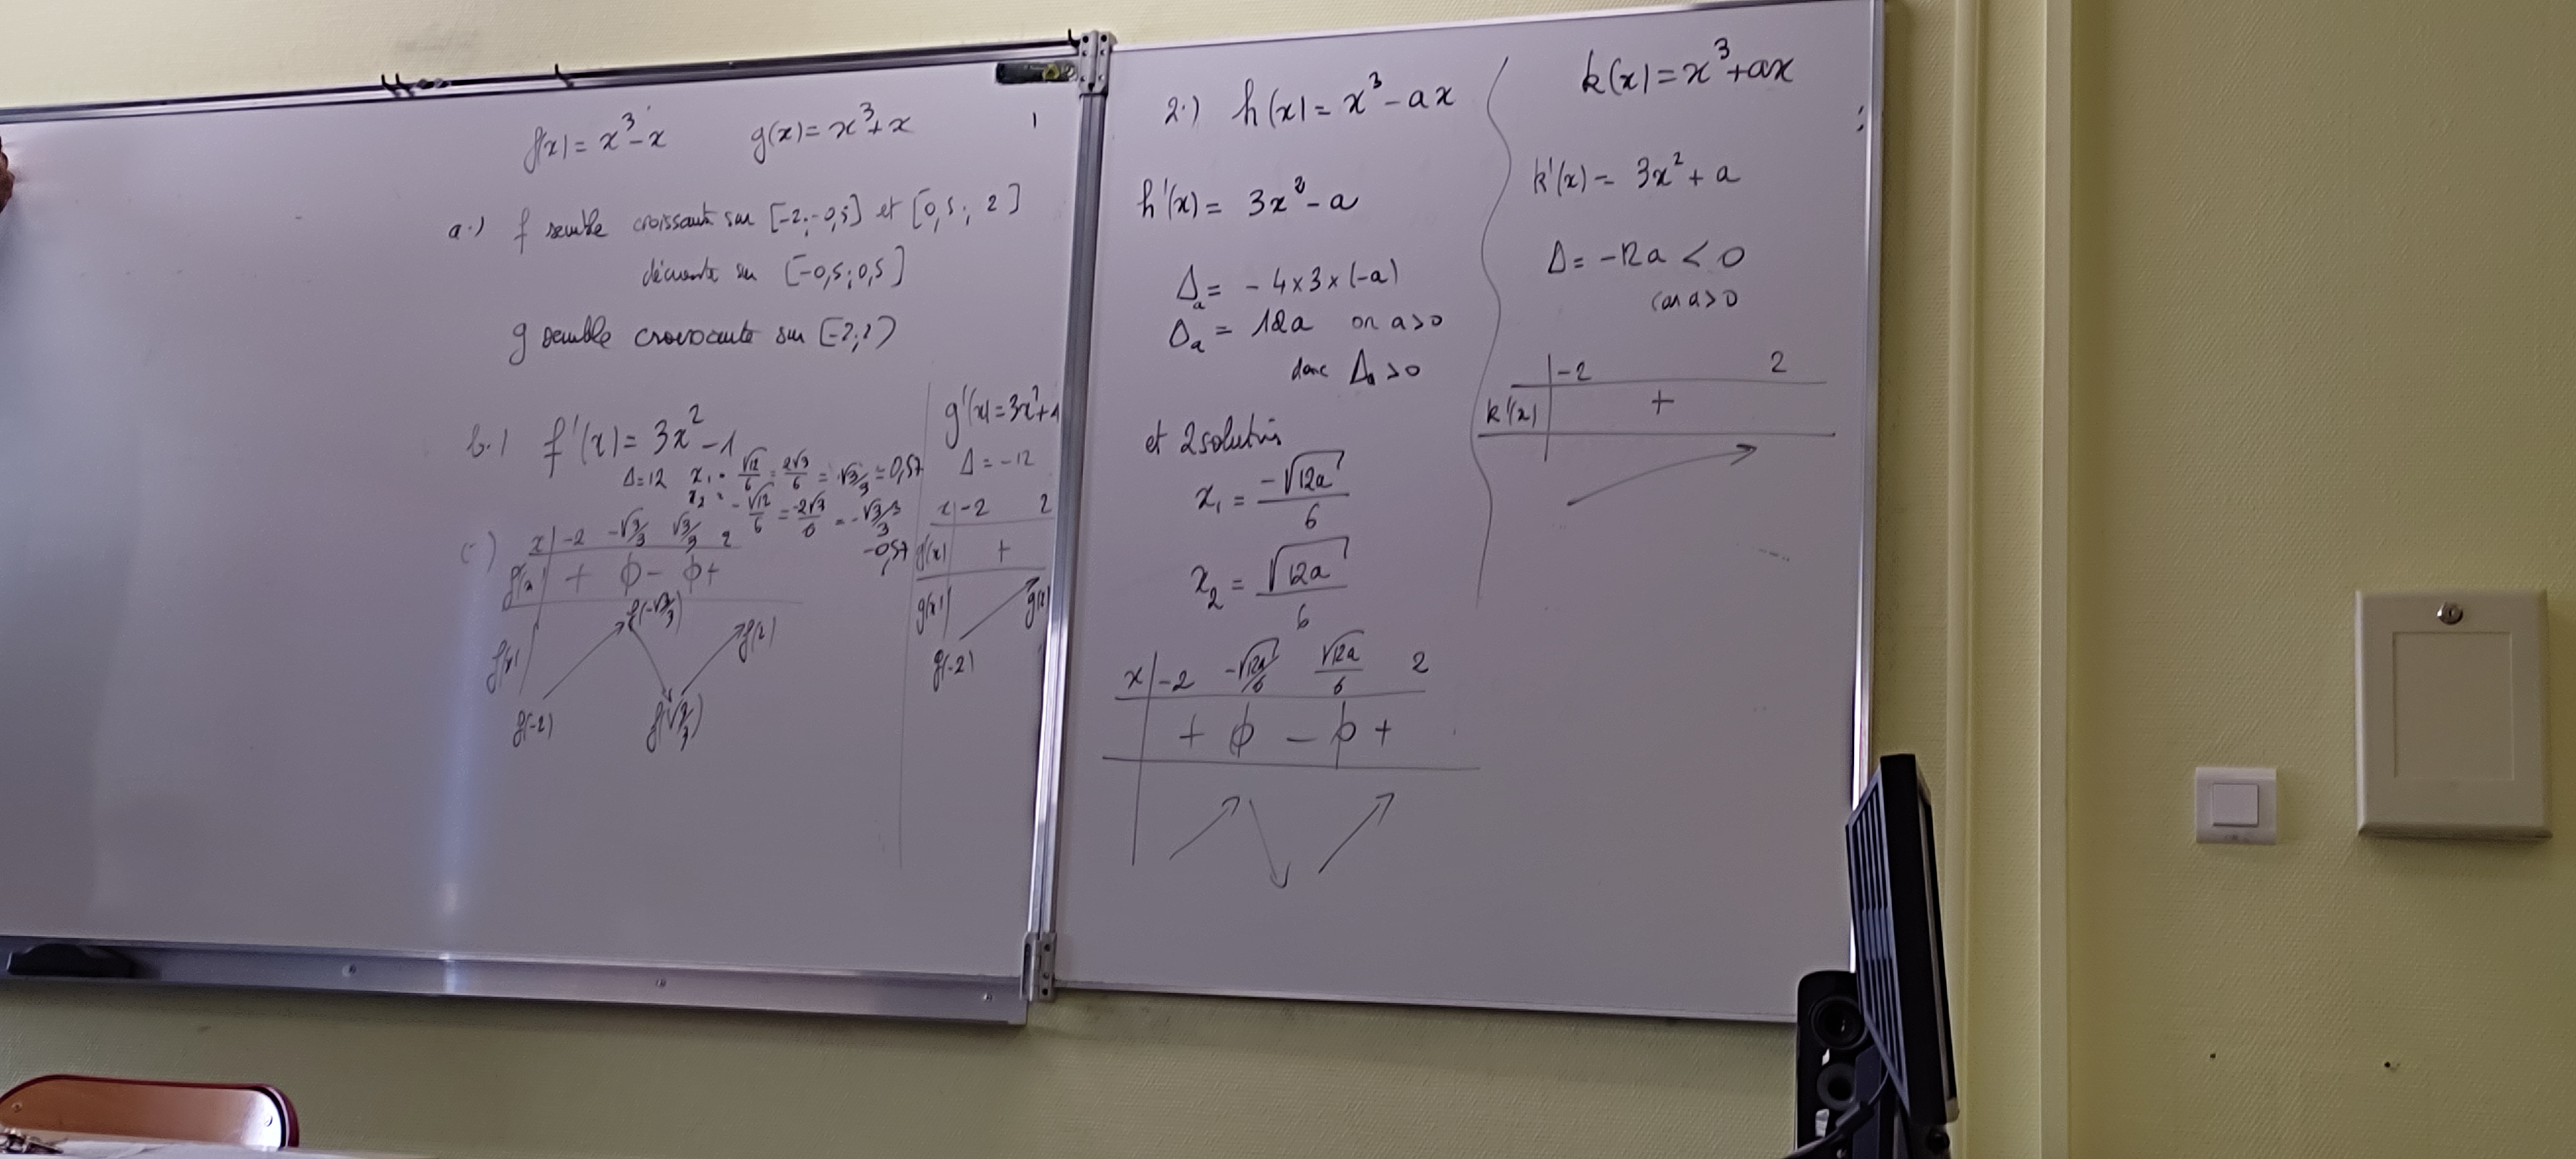 f(x) = x³ - x     g(x) = x³ + x
a.) f semble croissante sur [-2; -0,5] et [0,5; 2]
décroiste sur [-0,5; 0,5]
g semble croissante sur [-2; 2]
b.) f'(x) = 3x² - 1
Δ = 12   x₁ = √12/6 = 2√3/6 = √3/3 = 0,57
x₂ = -√12/6 = -2√3/6 = -√3/3
-0,57
c) x | -2   -√3/3   √3/3   2
f'(x) | + 0 - 0 +
f(x) | f(-2)   f(-√3/3)   f(√3/3)   f(2)
g'(x) = 3x² + 1
Δ = -12
x | -2   2
g'(x) | +
g(x) | g(-2)   g(2)
2.) h(x) = x³ - ax
h'(x) = 3x² - a
Δₐ = - 4 × 3 × (-a)
Δₐ = 12a   or a > 0
donc Δₐ > 0
et 2 solutis
x₁ = -√12a / 6
x₂ = √12a / 6
x | -2   -√12a/6   √12a/6   2
+ 0 - 0 +
k(x) = x³ + ax
k'(x) = 3x² + a
Δ = -12a < 0
car a > 0
-2   2
k'(x) | +